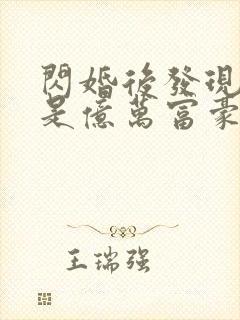 閃婚後發現
是億萬富豪
王瑞强